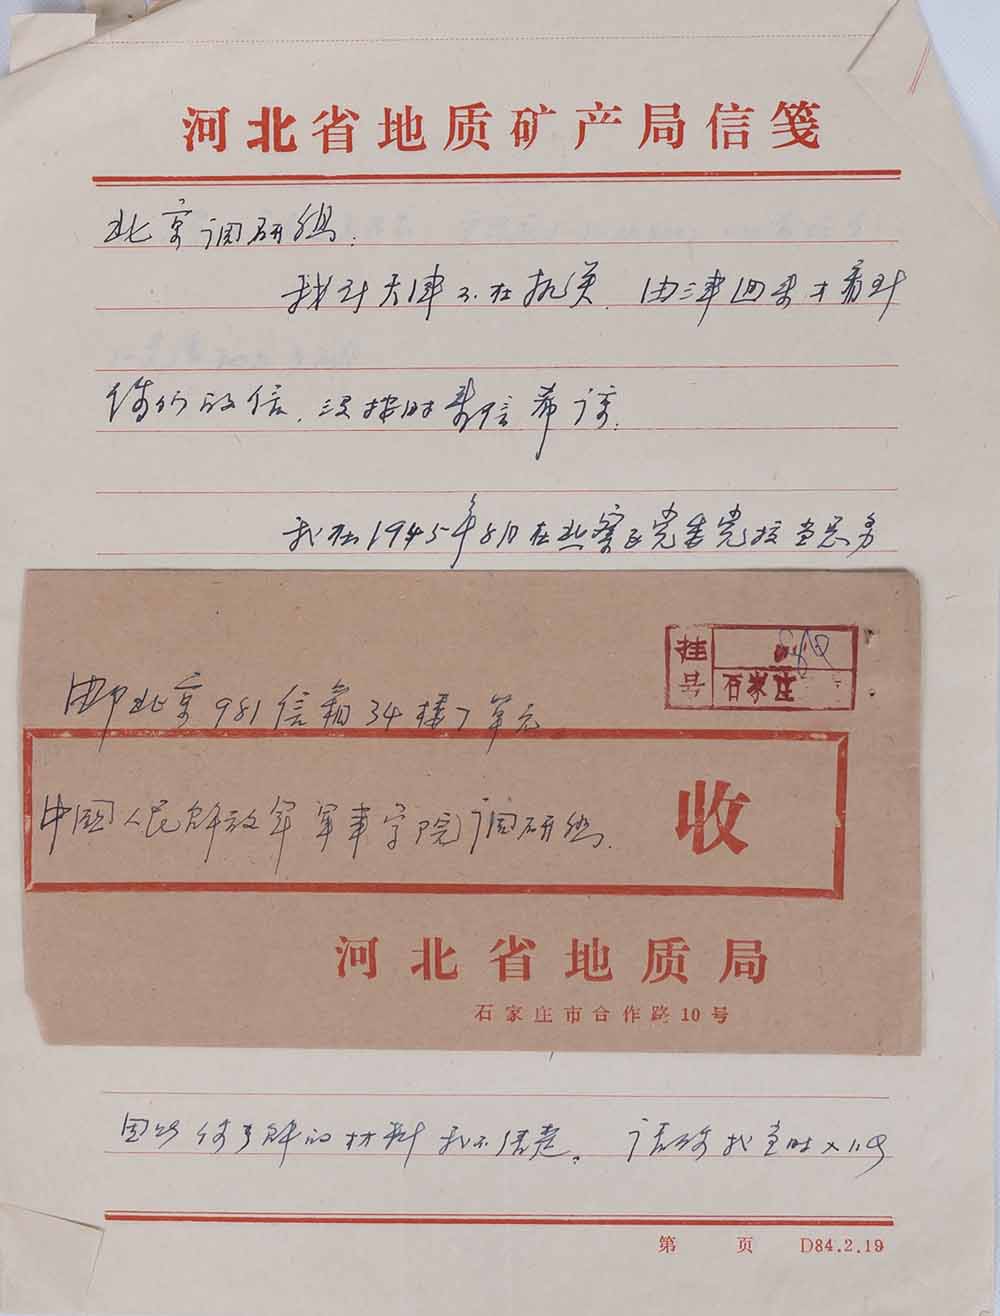 河北省地质矿产局信笺
北京调研组.
我到天津不在机关. 由津回来才看到
你们的信, 没按时寄信希谅.
我在1945年8月在冀察区党委党校当总务
挂号
石家庄
邮北京981信箱34楼7单元
中国人民解放军军事学院调研组.
收
河北省地质局
石家庄市合作路10号
因你了解的材料我不清楚。请你找当时
第 页 D84.2.19